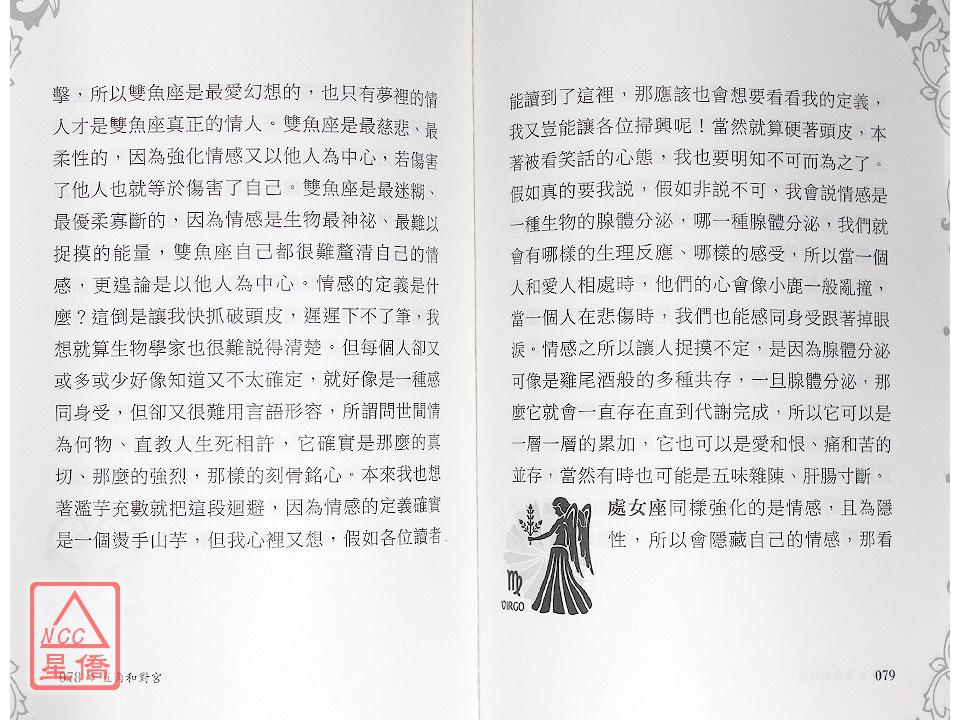 擊，所以雙魚座是最愛幻想的，也只有夢裡的情
人才是雙魚座真正的情人。雙魚座是最慈悲、最
柔性的，因為強化情感又以他人為中心，若傷害
了他人也就等於傷害了自己。雙魚座是最迷糊、
最優柔寡斷的，因為情感是生物最神祕、最難以
捉摸的能量，雙魚座自己都很難釐清自己的情
感，更遑論是以他人為中心。情感的定義是什
麼？這倒是讓我快抓破頭皮，遲遲下不了筆，我
想就算生物學家也很難說得清楚。但每個人卻又
或多或少好像知道又不太確定，就好像是一種感
同身受，但卻又很難用言語形容，所謂問世間情
為何物、直教人生死相許，它確實是那麼的真
切、那麼的強烈，那樣的刻骨銘心。本來我也想
著濫芋充數就把這段迴避，因為情感的定義確實
是一個燙手山芋，但我心裡又想，假如各位讀者
078
直角和對宮
NCC
星僑
能讀到了這裡，那應該也會想要看看我的定義，
我又豈能讓各位掃興呢！當然就算硬著頭皮，本
著被看笑話的心態，我也要明知不可而為之了。
假如真的要我說，假如非說不可，我會說情感是
一種生物的腺體分泌，哪一種腺體分泌，我們就
會有哪樣的生理反應、哪樣的感受，所以當一個
人和愛人相處時，他們的心會像小鹿一般亂撞，
當一個人在悲傷時，我們也能感同身受跟著掉眼
淚。情感之所以讓人捉摸不定，是因為腺體分泌
可像是雞尾酒般的多種共存，一旦腺體分泌，那
麼它就會一直存在直到代謝完成，所以它可以是
一層一層的累加，它也可以是愛和恨、痛和苦的
並存，當然有時也可能是五味雜陳、肝腸寸斷。
處女座同樣強化的是情感，且為隱
性，所以會隱藏自己的情感，那看
VIRGO
079